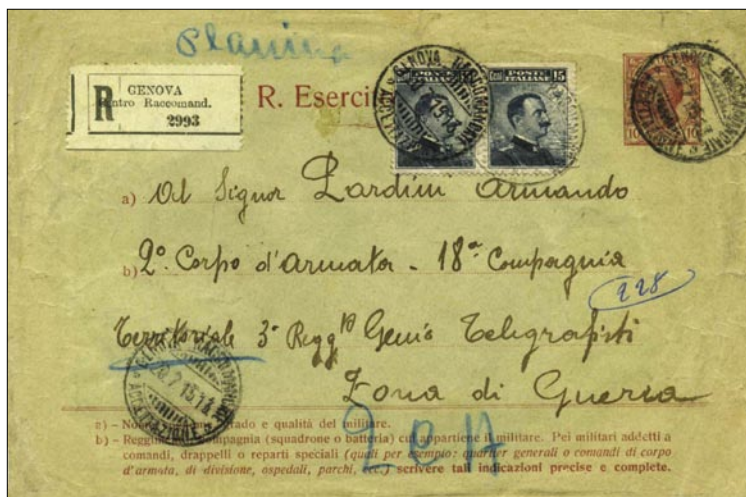 Planina
R
GENOVA
Centro Raccomand.
2993
R. Eserci
POSTE ITALIANE 15
10
10
a) Al Signor Lardini Armando
b) 2º Corpo d'armata - 18ª Compagnia
228
Territoriale 3º Regg.to Genio Telegrafisti
Zona di Guerra
a) - grado e qualità del militare.
b) - compagnia (squadrone o batteria) cui appartiene il militare. Pei militari addetti a
comandi, drappelli o reparti speciali (quali per esempio: quartier generali o comandi di corpo
d'armata, di divisione, ospedali, parchi, ecc.) scrivere tali indicazioni precise e complete.
GENOVA RACCOMANDATE
ACCETTAZIONE